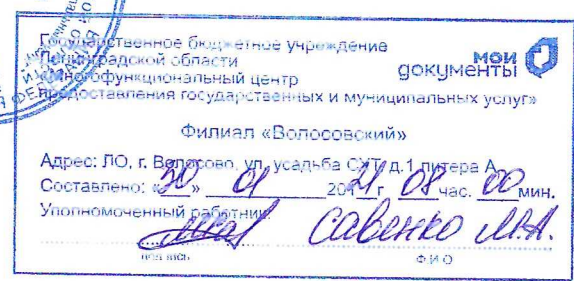 Государственное бюджетное учреждение
Ленинградской области
«Многофункциональный центр
предоставления государственных и муниципальных услуг»
мои
документы
Филиал «Волосовский»
Адрес: ЛО, г. Волосово, ул. усадьба СХТ, д.1 литера А
Составлено: «30» 01 2021 г. 08 час. 00 мин.
Уполномоченный работник
Савенко М.А.
подпись Ф.И.О